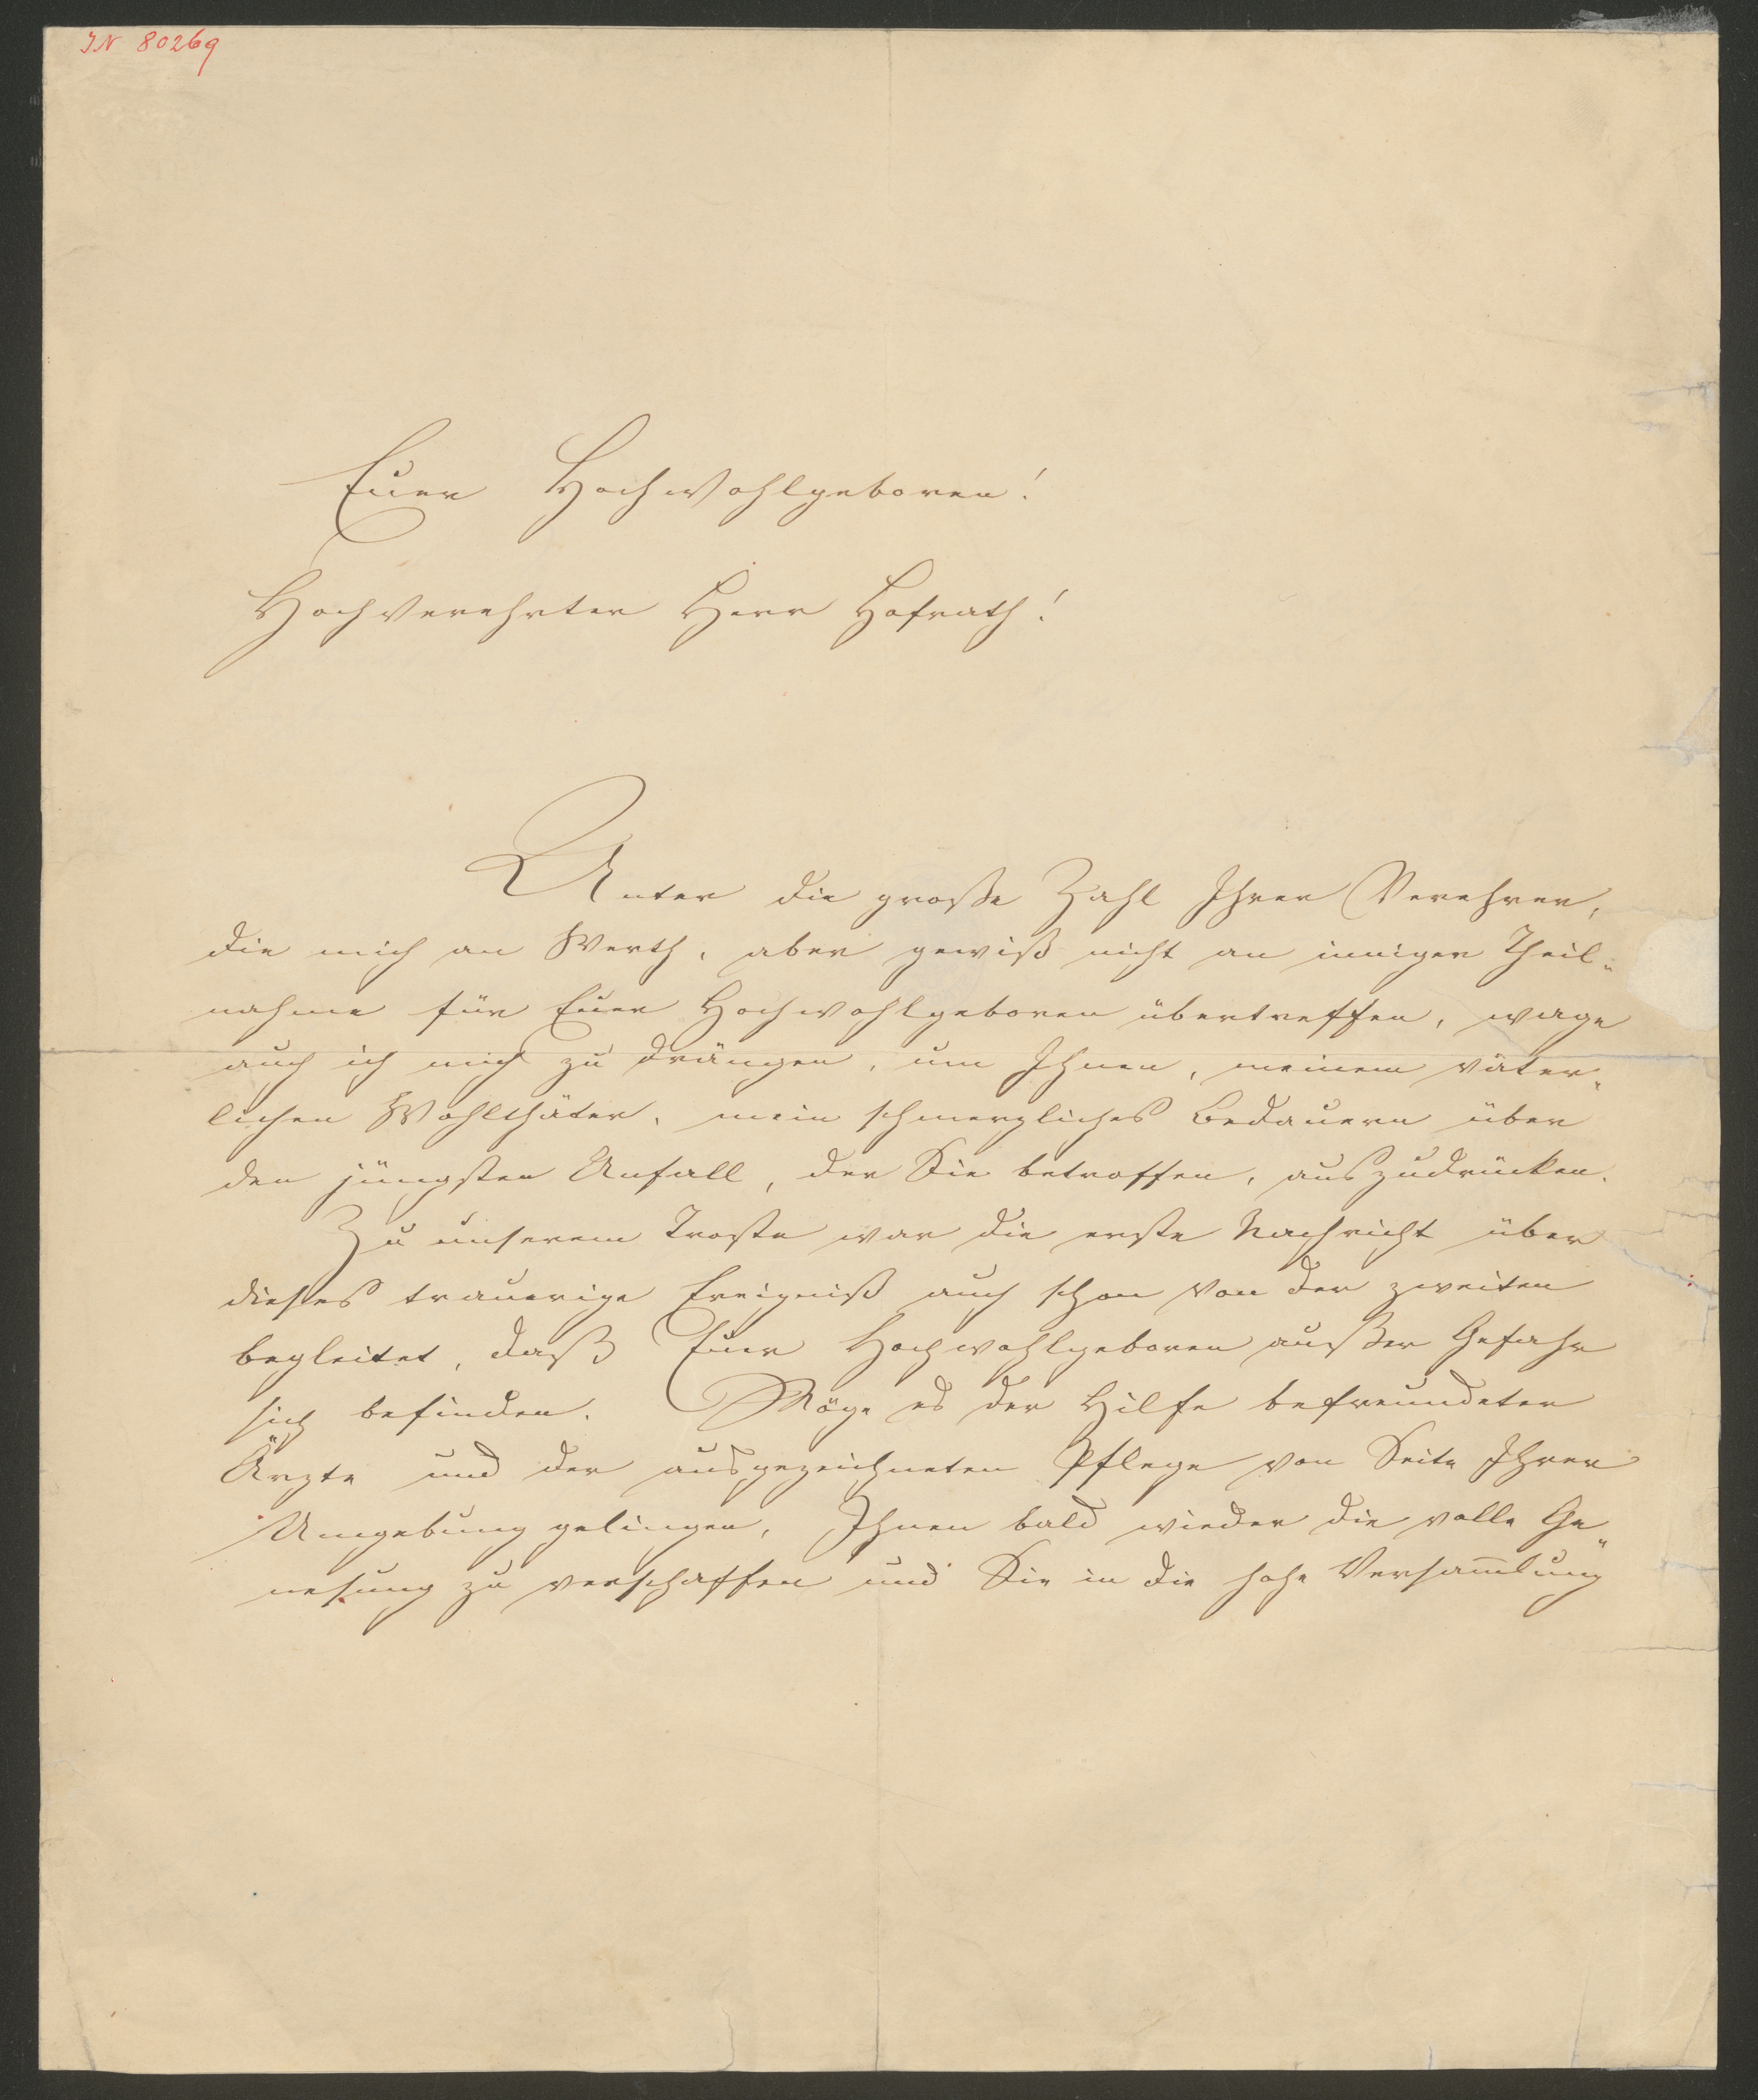 IN 80269
Euer Hochwohlgeboren!
Hochverehrter Herr Hofrath!
Unter die große Zahl Ihrer Verehrer,
die mich an Werth, aber gewiß nicht an inniger Theil-
nahme für Euer Hochwohlgeboren übertreffen, wage
auch ich mich zu drängen, um Ihnen, meinem väter-
lichen Wohlthäter, mein schmerzliches Bedauern über
den jüngsten Unfall, der Sie betroffen, auszudrücken.
Zu unserem Troste war die erste Nachricht über
dieses traurige Ereigniß auch schon von der zweiten
begleitet, daß Euer Hochwohlgeboren außer Gefahr
sich befinden. Möge es der Hilfe befreundeter
Ärzte und der ausgezeichneten Pflege von Seite Ihrer
Umgebung gelingen, Ihnen bald wieder die volle Ge-
nesung zu verschaffen und Sie in die hohe Versam̅lung